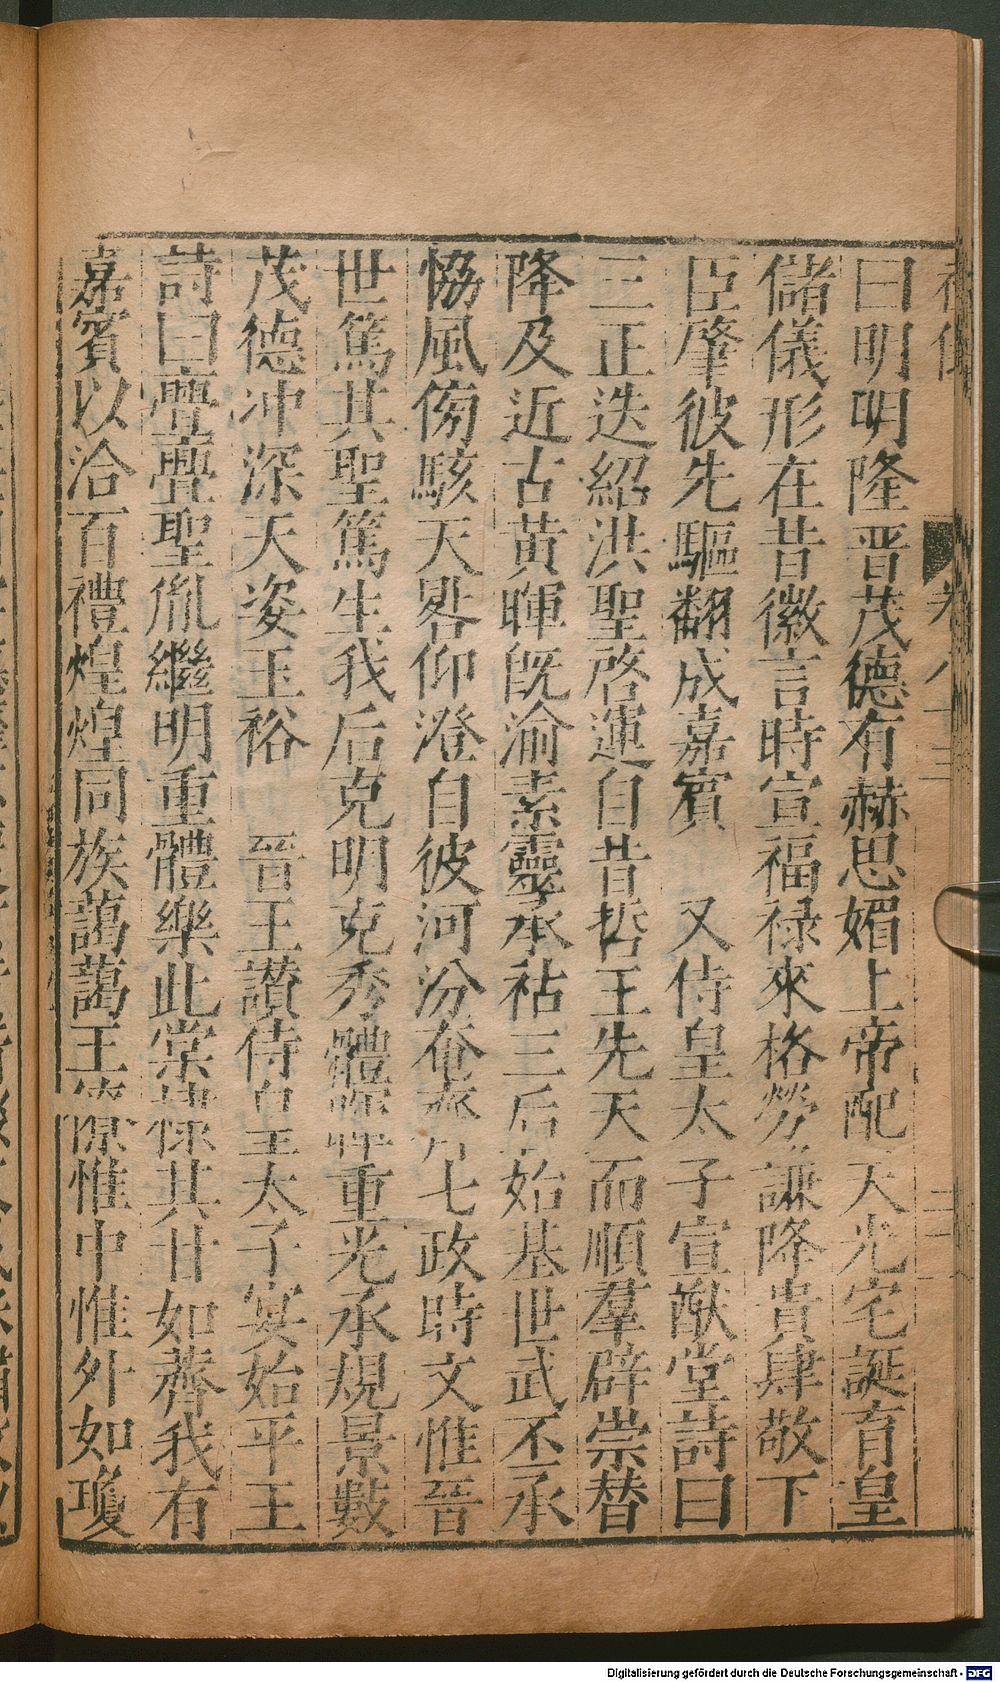 曰明明隆晋茂德有赫思媚上帝配天光宅誕育皇
儲儀形在昔徽言時宣福禄來格勞謙降貴肆敬下
臣肇彼先驅翻成嘉賓 又侍皇太子宣猷堂詩曰
三正迭紹洪聖啓運自昔哲王先天而順羣辟崇替
降及近古黃暉旣渝素靈承祜三后始基世武丕承
恊風傍駭天晷仰澄自彼河汾奄齊七政時文惟晉
世篤其聖篤生我后克明克秀體重光承規景數
茂德冲深天姿玉裕 晉王讃侍皇太子宴始平王
詩曰亹亹聖胤繼明重體樂此棠棣其甘如薺我有
嘉賓以洽百禮煌煌同族藹藹王惟中惟外如瓊
Digitalisierung gefördert durch die Deutsche Forschungsgemeinschaft - DFG